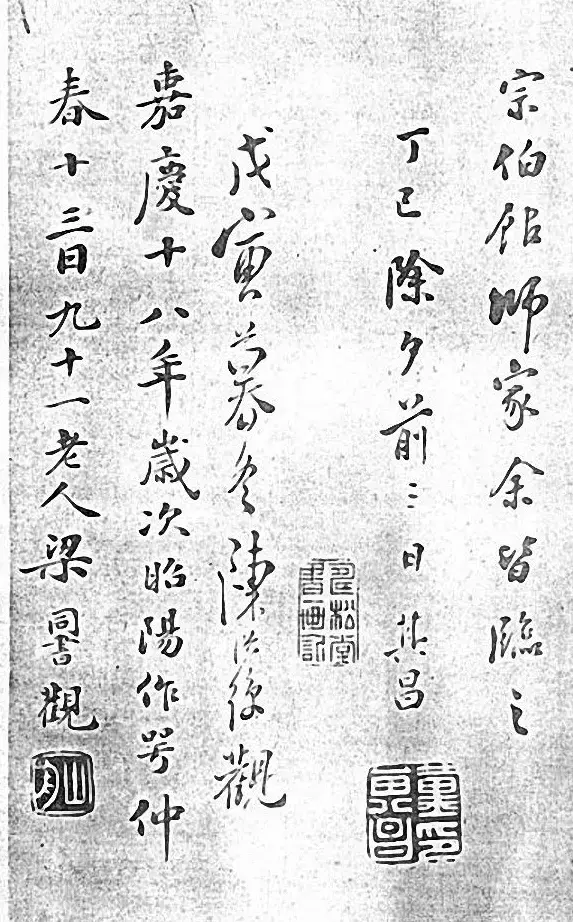 宗伯錯師家余皆臨之
丁巳除夕前三日其昌
戊寅暮冬陳洪綬觀
嘉慶十八年歲次昭陽作咢仲
春十三日九十一老人梁同書觀